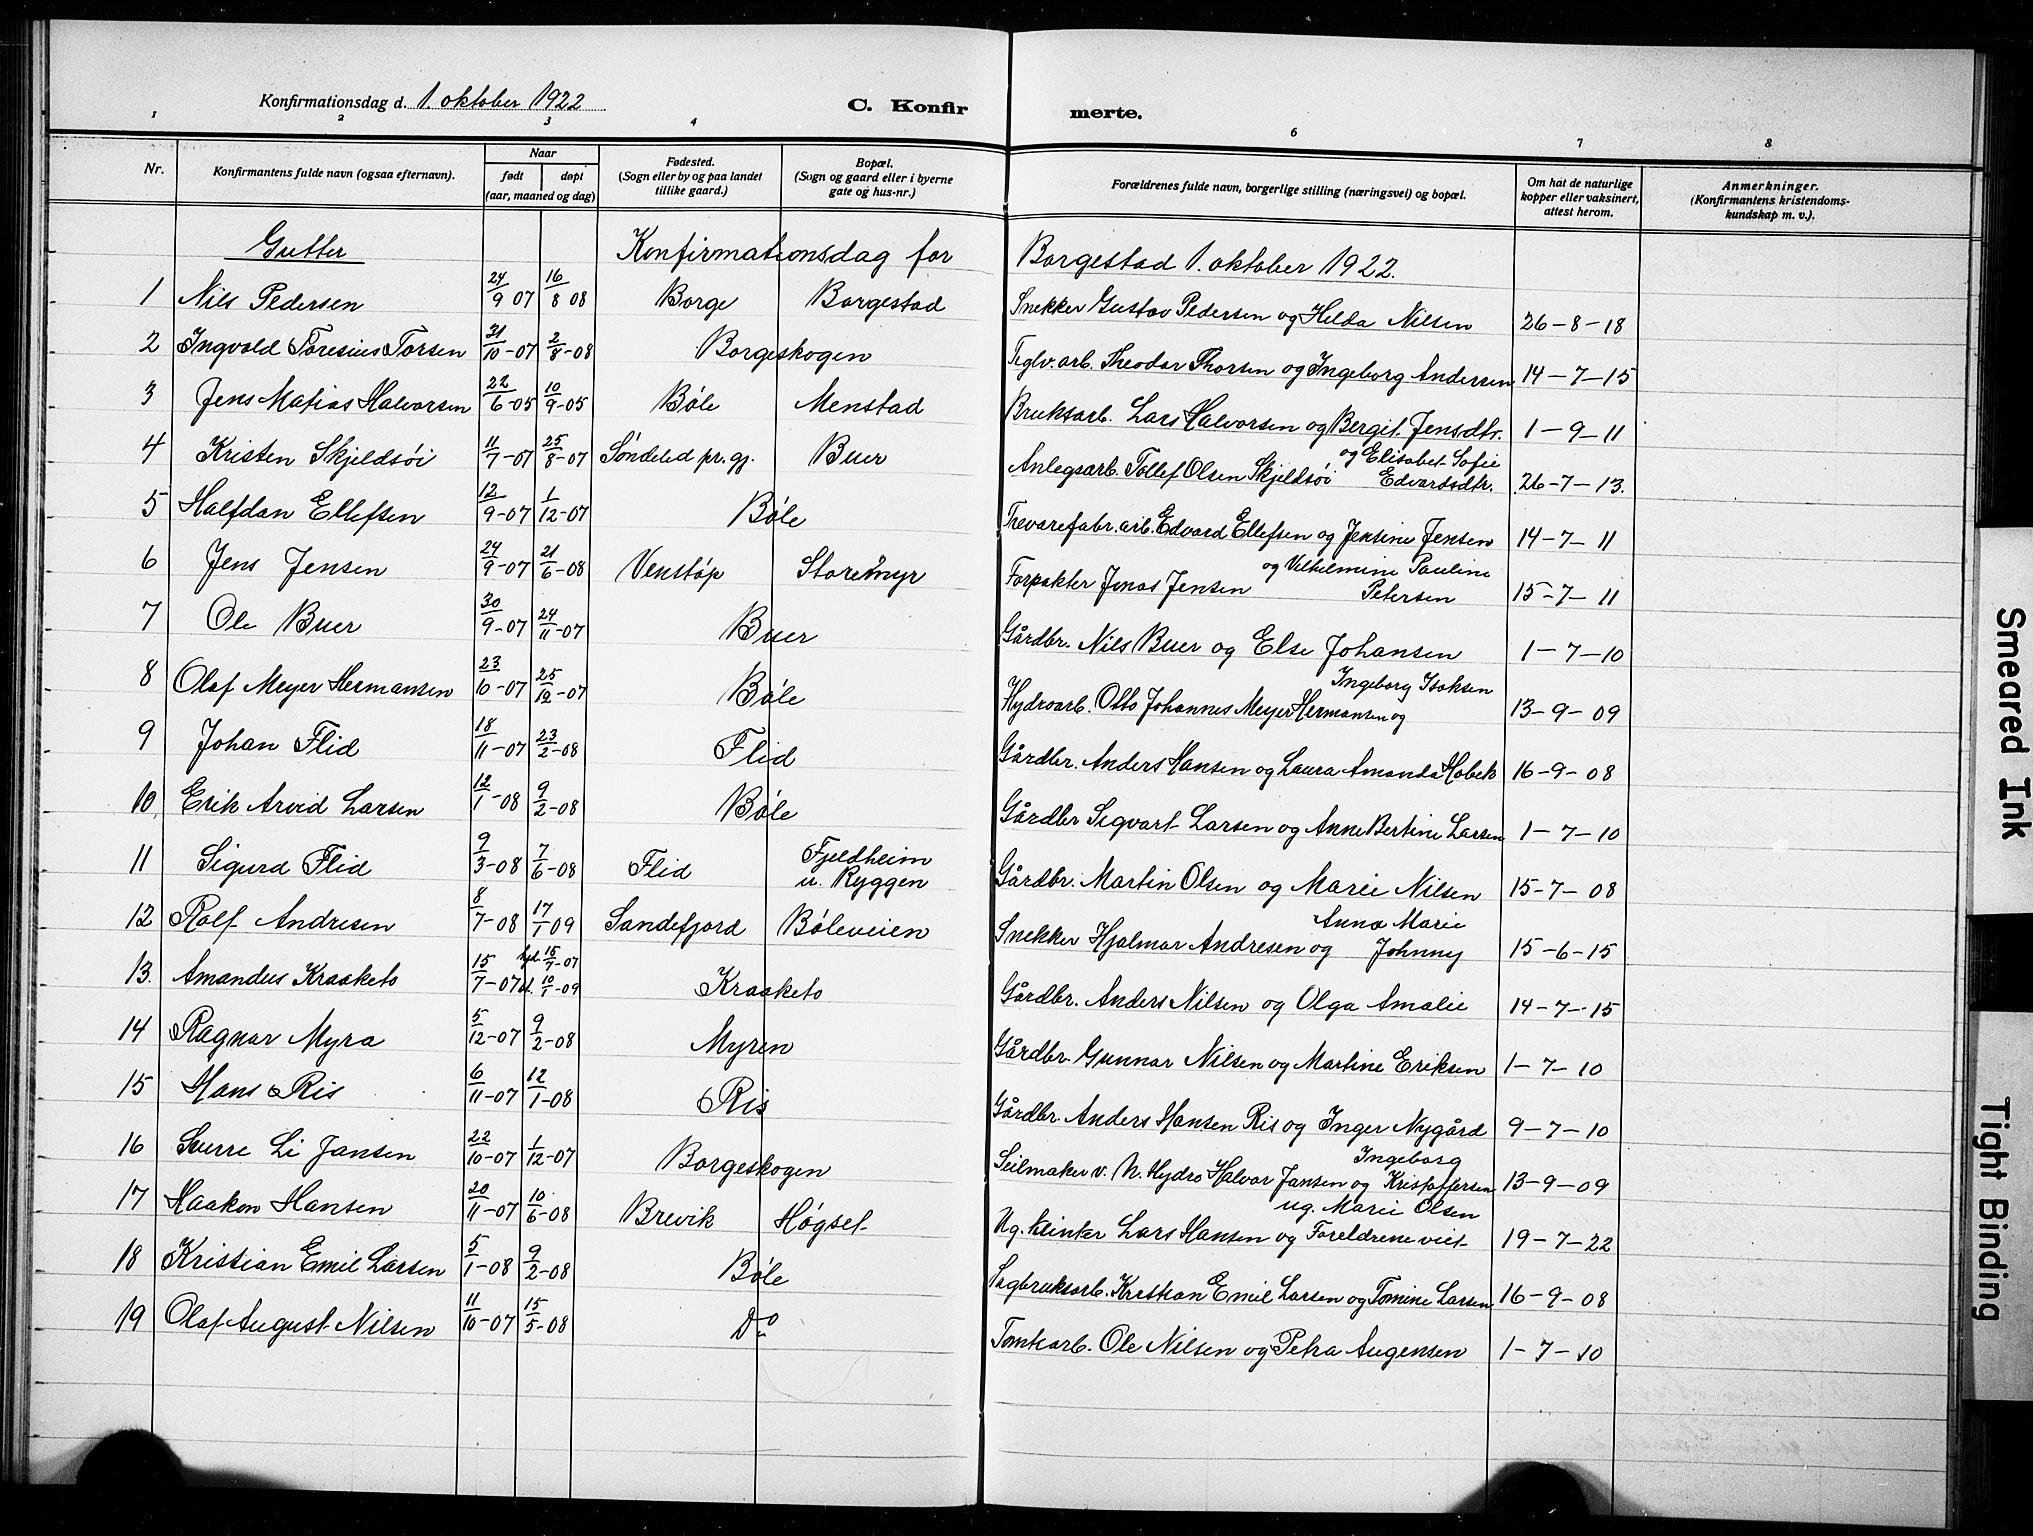 Konfirmationsdag d. 1. oktober 1922 C. Konfirmerte.
1 2 3 4 6 7 8
Nr. Konfirmantens fulde navn (ogsaa efternavn). Naar født døpt (aar, maaned og dag) Fødested. (Sogn eller by og paa landet tillike gaard.) Bopæl. (Sogn og gaard eller i byerne gate og hus-nr.) Forældrenes fulde navn, borgerlige stilling (næringsvei) og bopæl. Om hat de naturlige kopper eller vaksinert, attest herom. Anmerkninger. (Konfirmantens kristendomskundskap m. v.).
Gutter Konfirmationsdag for Borgestad 1. oktober 1922.
1 Nils Pedersen 24/9 07 16/8 08 Borge Borgestad Snekker Gustav Pedersen og Hilda Nilsen 26-8-18
2 Ingvald Toresius Torsen 31/10-07 2/8-08 Borgeskogen Teglv. arb. Theodor Thorsen og Ingeborg Andersen 14-7-15
3 Jens Matias Halvorsen 22/6-05 10/9-05 Bøle Menstad Bruksarb. Lars Halvorsen og Bergit Jensdtr. 1-9-11
4 Kristen Skjeldsøi 11/7-07 25/8-07 Søndeled pr. gj. Buer Anlegsarb. Tollef Olsen Skjeldsøi og Elisabet Sofie Edvardsdtr. 26-7-13.
5 Halfdan Ellefsen 12/9-07 1/12-07 Bøle Trevarefabr. arb. Edvard Ellefsen og Jensine Jensen 14-7-11
6 Jens Jensen 24/9-07 21/6-08 Venstøp Storemyr Forpakter Jonas Jensen og Vilhelmine Pauline Petersen 15-7-11
7 Ole Buer 30/9-07 24/11-07 Buer Gårdbr. Nils Buer og Else Johansen 1-7-10
8 Olaf Meyer Hermansen 23/10-07 25/12-07 Bøle Hydroarb. Otto Johannes Meyer Hermansen og Ingeborg Isaksen 13-9-09
9 Johan Flid 18/11-07 23/2-08 Flid Gårdbr. Anders Hansen og Laura Amanda Hobek 16-9-08
10. Erik Arvid Larsen 12/1-08 9/2-08 Bøle Gårdbr Sigvart Larsen og Anne Bertine Larsen 1-7-10
11 Sigurd Flid 9/3-08 7/6-08 Flid Fjeldheim u. Ryggen Gårdbr. Martin Olsen og Marie Nilsen 15-7-08
12 Rolf Andresen 8/7-08 17/1-09 Sandefjord Bøleveien Snekker Hjalmar Andresen og Anna Marie Johnny 15-6-15
13. Amandus Kraaketo 15/7-07 hjd. 15/7-07 st. 10/1-09 Kraaketo Gårdbr. Anders Nilsen og Olga Amalie 14-7-15
14 Ragnar Myra 5/12-07 9/2-08 Myren Gårdbr. Gunnar Nilsen og Martine Eriksen 1-7-10
15 Hans Ris 6/11-07 12/1-08 Ris Gårdbr. Anders Hansen Ris og Inger Nygård 9-7-10
16 Sverre Li Jansen 22/10-07 1/12-07 Borgeskogen Seilmaker v. N. Hydro Halvor Jansen og Ingeborg Kristoffersen 13-9-09
17 Haakon Hansen 20/11-07 10/6-08 Brevik Høgset Ug. klinker Lars Hansen og ug. Marie Olsen Foreldrene viet 19-7-22
18 Kristian Emil Larsen 5/1-08 9/2-08 Bøle Sagbruksarb. Kristian Emil Larsen og Tomine Larsen 16-9-08
19 Olaf August Nilsen 11/10-07 15/5-08 Do Tomtearb. Ole Nilsen og Petra Augensen 1-7-10
Smeared Ink
Tight Binding